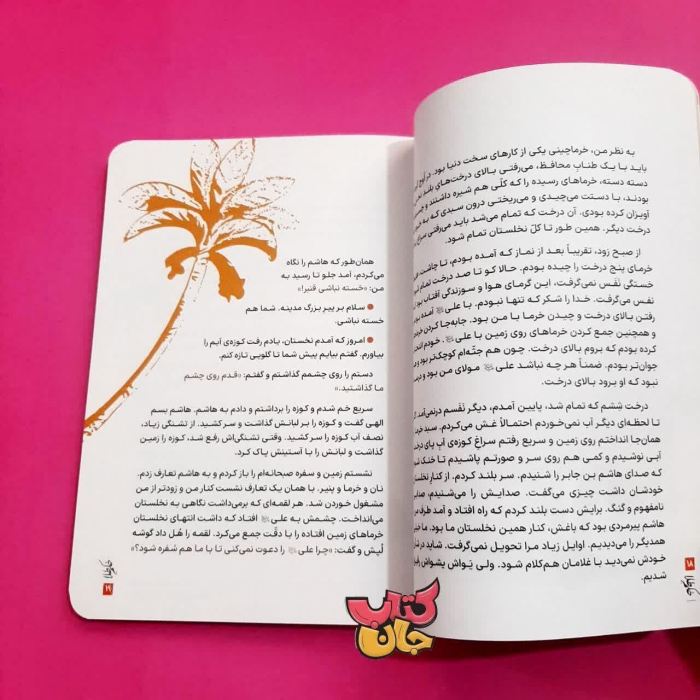 به نظر من، خرماچینی یکی از کارهای سخت دنیا بود.
باید با یک طناب محافظ، می‌رفتی بالای درخت‌های بلند
دسته دسته، خرماهای رسیده را که کلّی هم شیره داشتند و
بودند، با دستت می‌چیدی و می‌ریختی درون سبدی که به
آویزان کرده بودی. آن درخت که تمام می‌شد باید می‌رفتی سراغ
درخت دیگر. همین طور تا کلّ نخلستان تمام شود.
از صبح زود، تقریباً بعد از نماز که آمده بودم، تا چاشت
خرمای پنج درخت را چیده بودم. حالا کو تا صد درخت تمام
خستگی نفس نمی‌گرفت، این گرمای هوا و سوزندگی آفتاب
نفس می‌گرفت. خدا را شکر که تنها نبودم. با علی آمده
رفتن بالای درخت و چیدن خرما با من بود. جابه‌جا کردن
و همچنین جمع کردن خرماهای روی زمین با علی. خودم
کرده بودم که بروم بالای درخت. چون هم جثّه‌ام کوچک‌تر بود و
جوان‌تر بودم. ضمناً هر چه نباشد علی مولای من بود و
نبود که او برود بالای درخت.
درخت ششم که تمام شد، پایین آمدم، دیگر نَفَسم درنمی‌آمد
تا لحظه‌ای دیگر آب نمی‌خوردم احتمالاً غش می‌کردم. سبد
همان‌جا انداختم روی زمین و سریع رفتم سراغ کوزه‌ی آب پای درخت
آبی نوشیدم و کمی هم روی سر و صورتم پاشیدم تا خنک
که صدای هاشم بن جابر را شنیدم. سر بلند کردم. از کنار
خودشان داشت چیزی می‌گفت. صدایش را می‌شنیدم،
نامفهوم و گنگ. برایش دست بلند کردم که راه افتاد و آمد طرف
هاشم پیرمردی بود که باغش، کنار همین نخلستان ما بود.
همدیگر را می‌دیدیم. اوایل زیاد مرا تحویل نمی‌گرفت. شاید در
خودش نمی‌دید با غلامان هم‌کلام شود. ولی یَواش یَواش
شدیم.
۱۸
همان‌طور که هاشم را نگاه
می‌کردم، آمد جلو تا رسید به
من: «خسته نباشی قنبر!»
سلام بر پیر بزرگ مدینه. شما هم
خسته نباشی.
امروز که آمدم نخستان، یادم رفت کوزه‌ی آبم را
بیاورم. گفتم بیایم پیش شما تا گلویی تازه کنم.
دستم را روی چشمم گذاشتم و گفتم: «قدم روی چشم
ما گذاشتید.»
سریع خم شدم و کوزه را برداشتم و دادم به هاشم. هاشم بسم
الهی گفت و کوزه را بر لبانش گذاشت و سر کشید. از تشنگی زیاد،
نصف آب کوزه را سر کشید. وقتی تشنگی‌اش رفع شد، کوزه را زمین
گذاشت و لبانش را با آستینش پاک کرد.
نشستم زمین و سفره صبحانه‌ام را باز کردم و به هاشم تعارف زدم.
نان و خرما و پنیر. با همان یک تعارف نشست کنار من و زودتر از من
مشغول خوردن شد. هر لقمه‌ای که برمی‌داشت نگاهی به نخلستان
می‌انداخت. چشمش به علی افتاد که داشت انتهای نخلستان
خرماهای زمین افتاده را با دقّت جمع می‌کرد. لقمه را هُل داد گوشه
لُپش و گفت: «چرا علی را دعوت نمی‌کنی تا با ما هم سفره شود؟»
۱۹
کتاب
جان